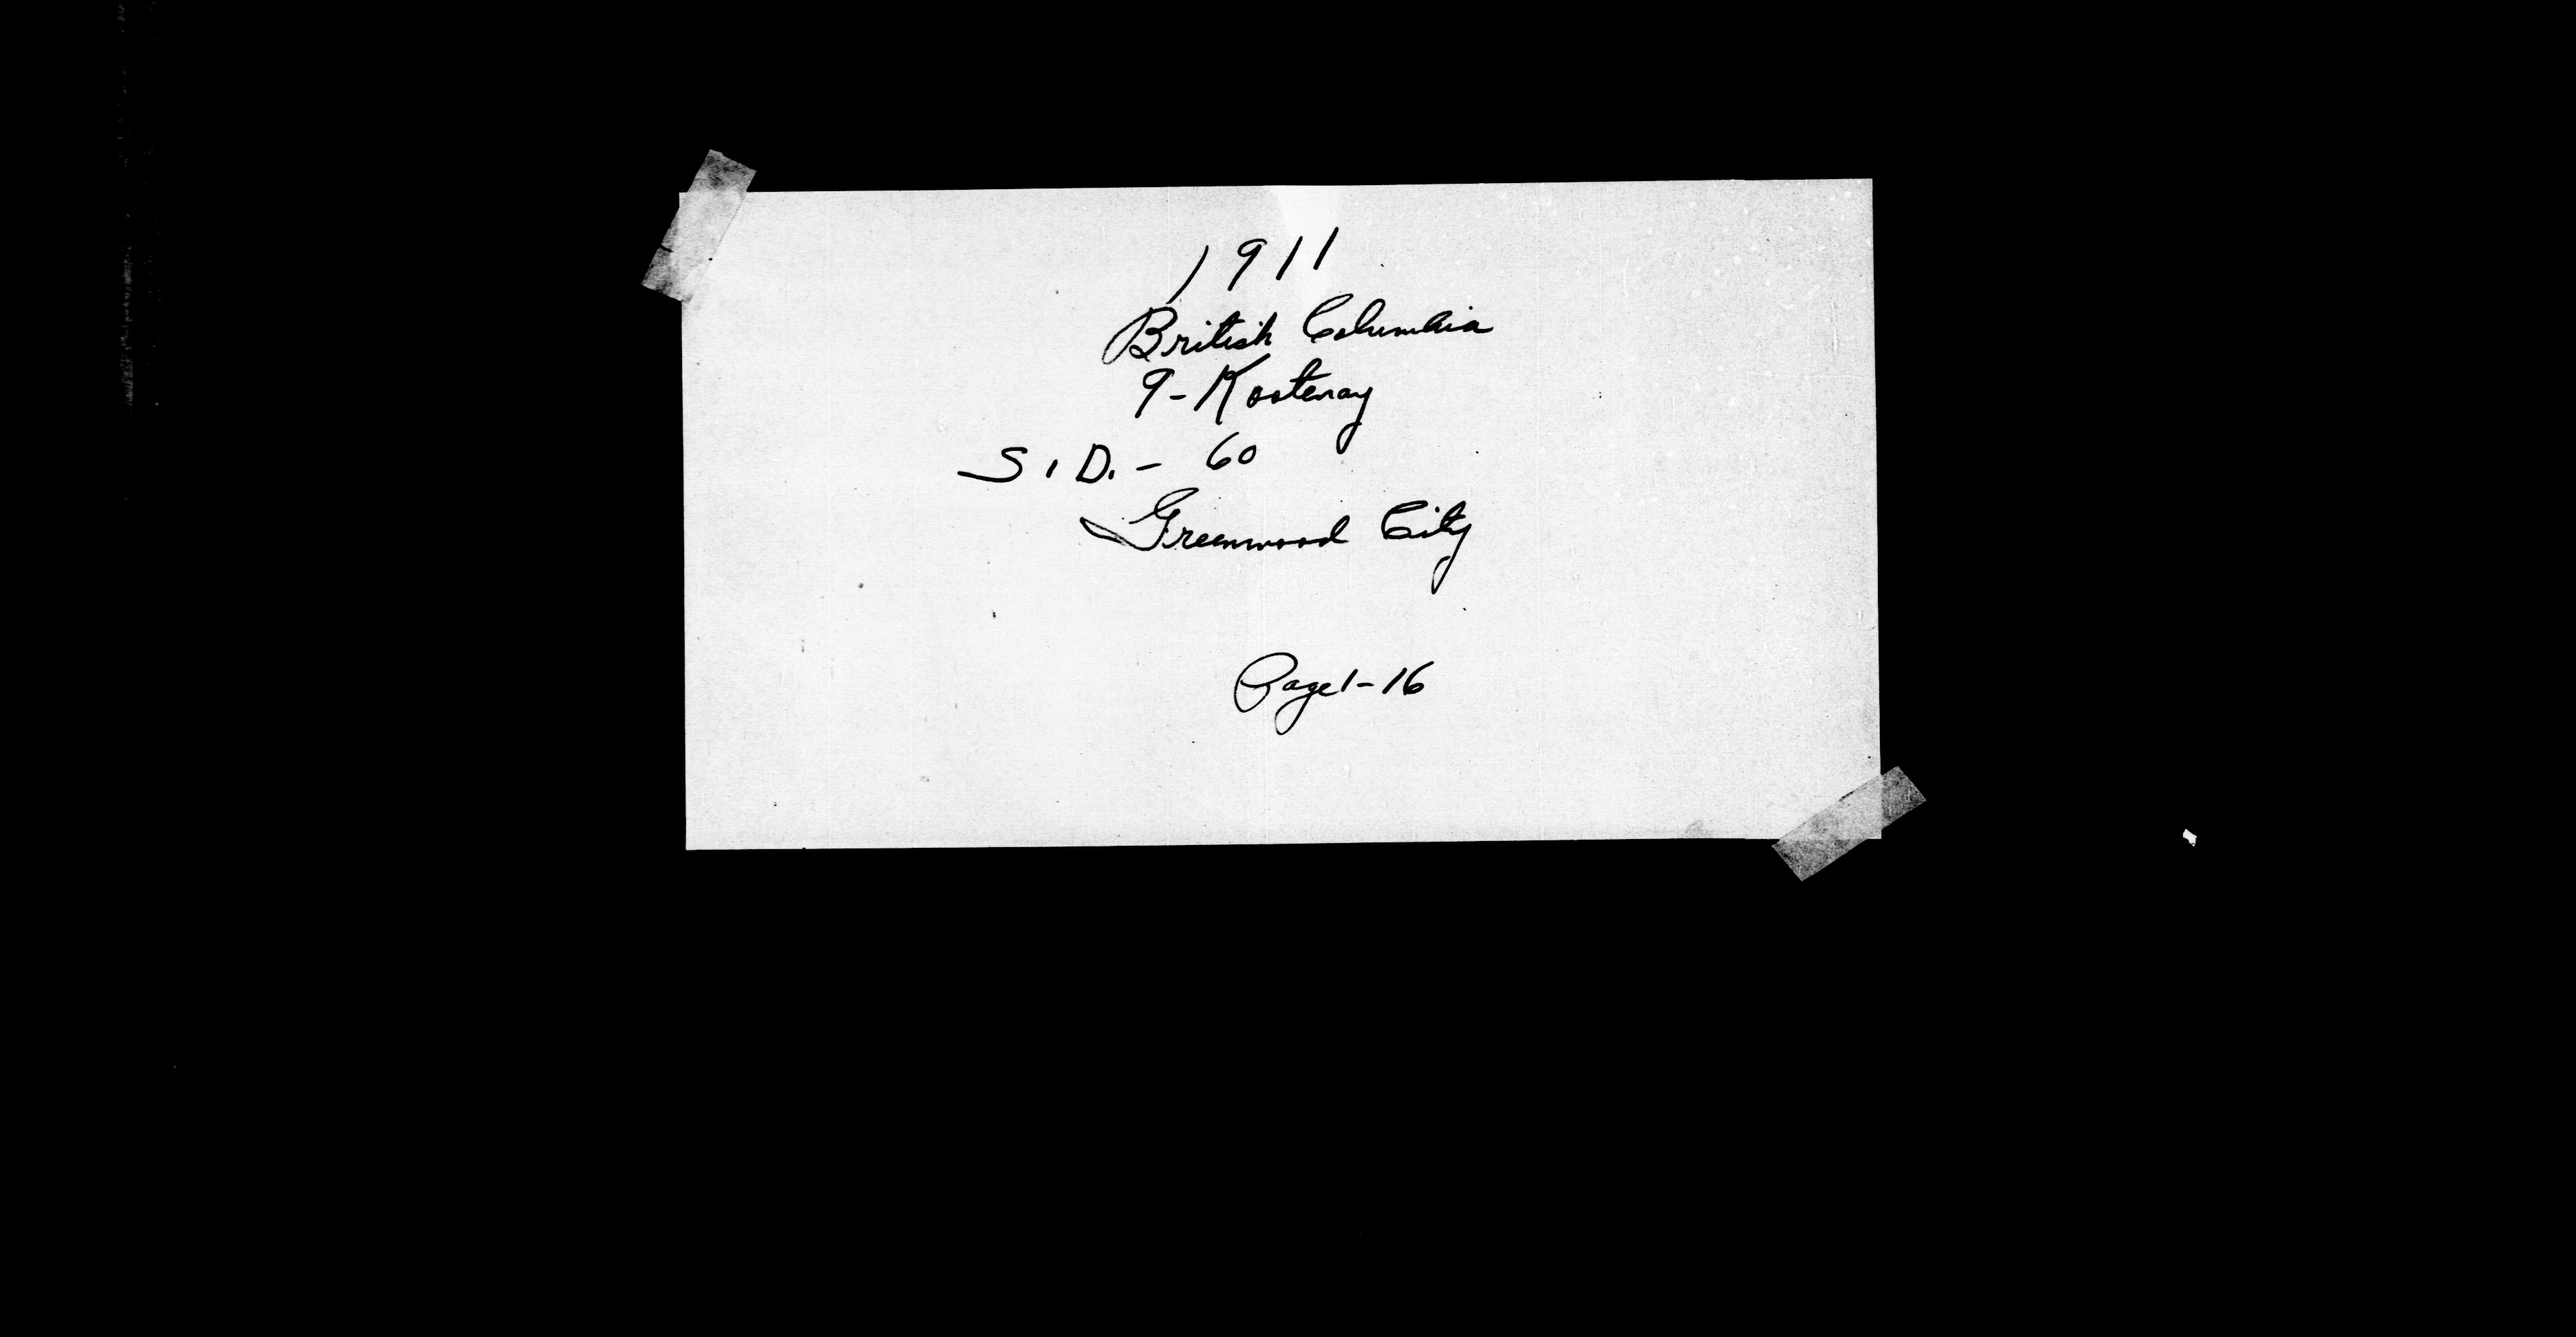 1911
British Columbia
9-Kootenay
S.D. - 60
Greenwood City
Page 1-16